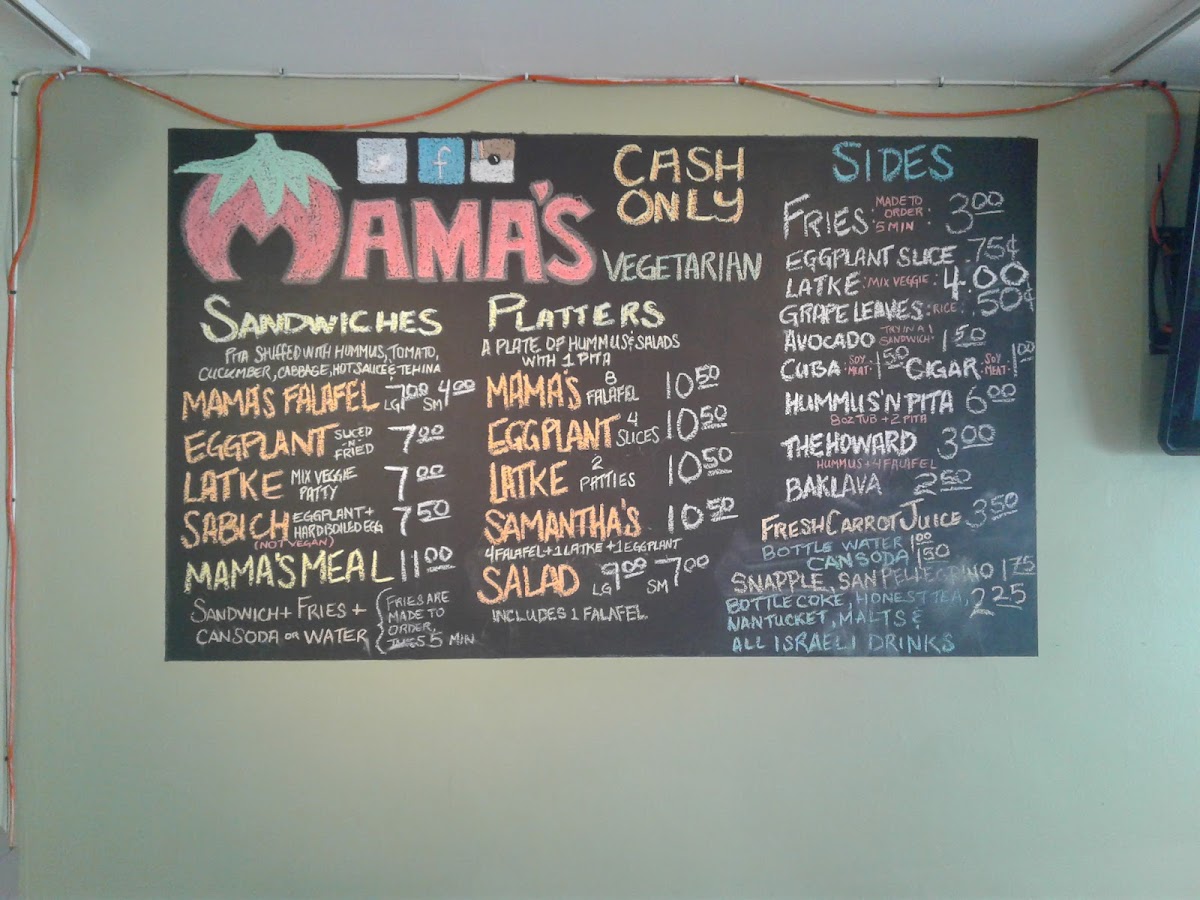 MAMA'S
CASH
ONLY
VEGETARIAN
SANDWICHES
PITA STUFFED WITH HUMMUS, TOMATO,
CUCUMBER, CABBAGE, HOT SAUCE & TEHINA
MAMA'S FALAFEL LG 7.00 SM 4.00
EGGPLANT SLICED -N- FRIED 7.00
LATKE MIX VEGGIE PATTY 7.00
SABICH EGGPLANT + HARDBOILED EGG 7.50
(NOT VEGAN)
MAMA'S MEAL 11.00
SANDWICH + FRIES +
CAN SODA OR WATER
FRIES ARE
MADE TO
ORDER,
TAKES 5 MIN
PLATTERS
A PLATE OF HUMMUS & SALADS
WITH 1 PITA
MAMA'S 8 FALAFEL 10.50
EGGPLANT 4 SLICES 10.50
LATKE 2 PATTIES 10.50
SAMANTHA'S 10.50
4 FALAFEL + 1 LATKE + 1 EGGPLANT
SALAD LG 9.00 SM 7.00
INCLUDES 1 FALAFEL
SIDES
FRIES MADE TO ORDER 5 MIN 3.00
EGGPLANT SLICE .75¢
LATKE MIX VEGGIE 4.00
GRAPE LEAVES RICE .50¢
AVOCADO TRY IN A SANDWICH 1.50
CUBA SOY MEAT 1.50 CIGAR SOY MEAT 1.00
HUMMUS 'N PITA 6.00
8OZ TUB + 2 PITA
THE HOWARD 3.00
HUMMUS + 4 FALAFEL
BAKLAVA 2.50
FRESH CARROT JUICE 3.50
BOTTLE WATER 1.00
CAN SODA 1.50
SNAPPLE, SAN PELLEGRINO 1.75
BOTTLE COKE, HONEST TEA, 2.25
NANTUCKET, MALTS &
ALL ISRAELI DRINKS